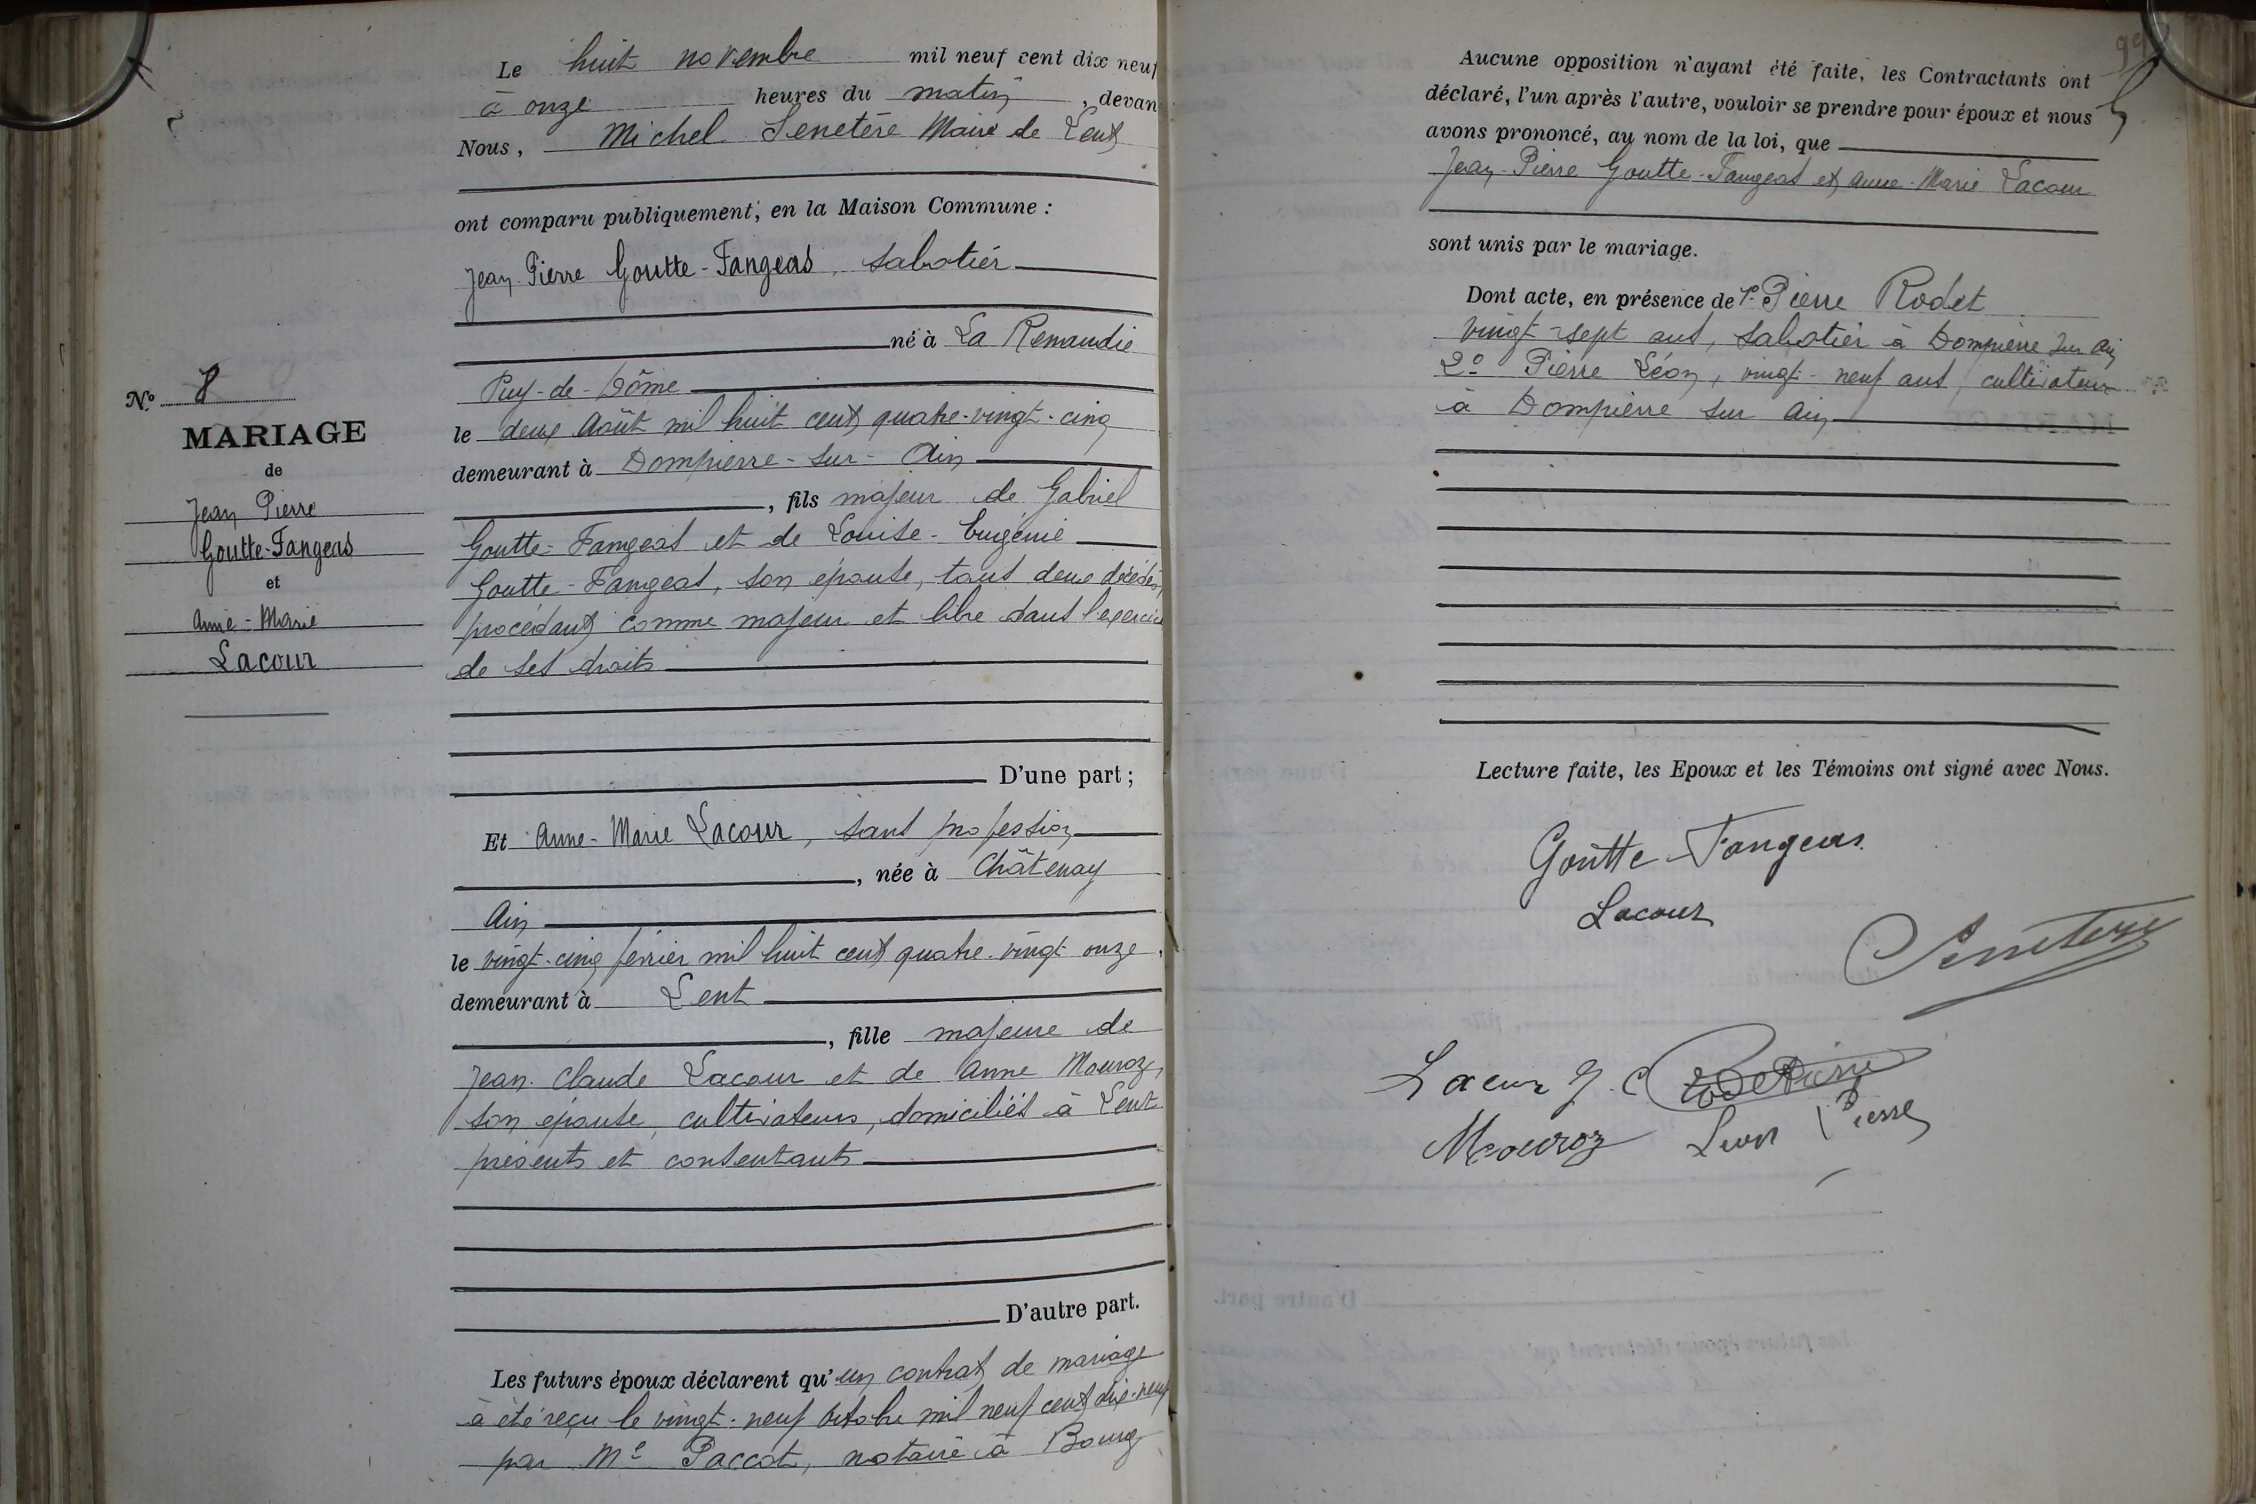 Le huit novembre mil neuf cent dix neuf
à onze heures du matin, devan
Nous, Michel Senetère Maire de Lent
ont comparu publiquement, en la Maison Commune :
Jean Pierre Goutte-Fangeas, sabotier
né à La Renaudie
Puy-de-Dôme
le deux Août mil huit cent quatre-vingt-cinq
demeurant à Dompierre-sur-Ain
, fils majeur de Gabriel
Goutte-Fangeas et de Louise-Eugénie
Goutte-Fangeas, son épouse, tous deux décédés,
procédant comme majeur et libre dans l'exercice
de ses droits
D'une part ;
Et Anne-Marie Lacour, sans profession
, née à Châtenay
Ain
le vingt-cinq février mil huit cent quatre-vingt onze,
demeurant à Lent
, fille majeure de
Jean-Claude Lacour et de Anne Mouroz,
son épouse, cultivateurs, domiciliés à Lent
présents et consentants
D'autre part.
Les futurs époux déclarent qu'un contrat de mariage
a été reçu le vingt-neuf octobre mil neuf cent dix-neuf
par Me Paccot, notaire à Bourg
No 8
MARIAGE
de
Jean Pierre
Goutte-Fangeas
et
Anne-Marie
Lacour
99
Aucune opposition n'ayant été faite, les Contractants ont
déclaré, l'un après l'autre, vouloir se prendre pour époux et nous
avons prononcé, au nom de la loi, que
Jean-Pierre Goutte-Fangeas et Anne-Marie Lacour
sont unis par le mariage.
Dont acte, en présence de 1o Pierre Rodet
vingt-sept ans, sabotier à Dompierre sur Ain
2o Pierre Léon, vingt-neuf ans, cultivateur
à Dompierre sur Ain
Lecture faite, les Epoux et les Témoins ont signé avec Nous.
Goutte-Fangeas
Lacour
Senetère
Lacour J. C
Rodet Pierre
Mouroz
Leon Pierre